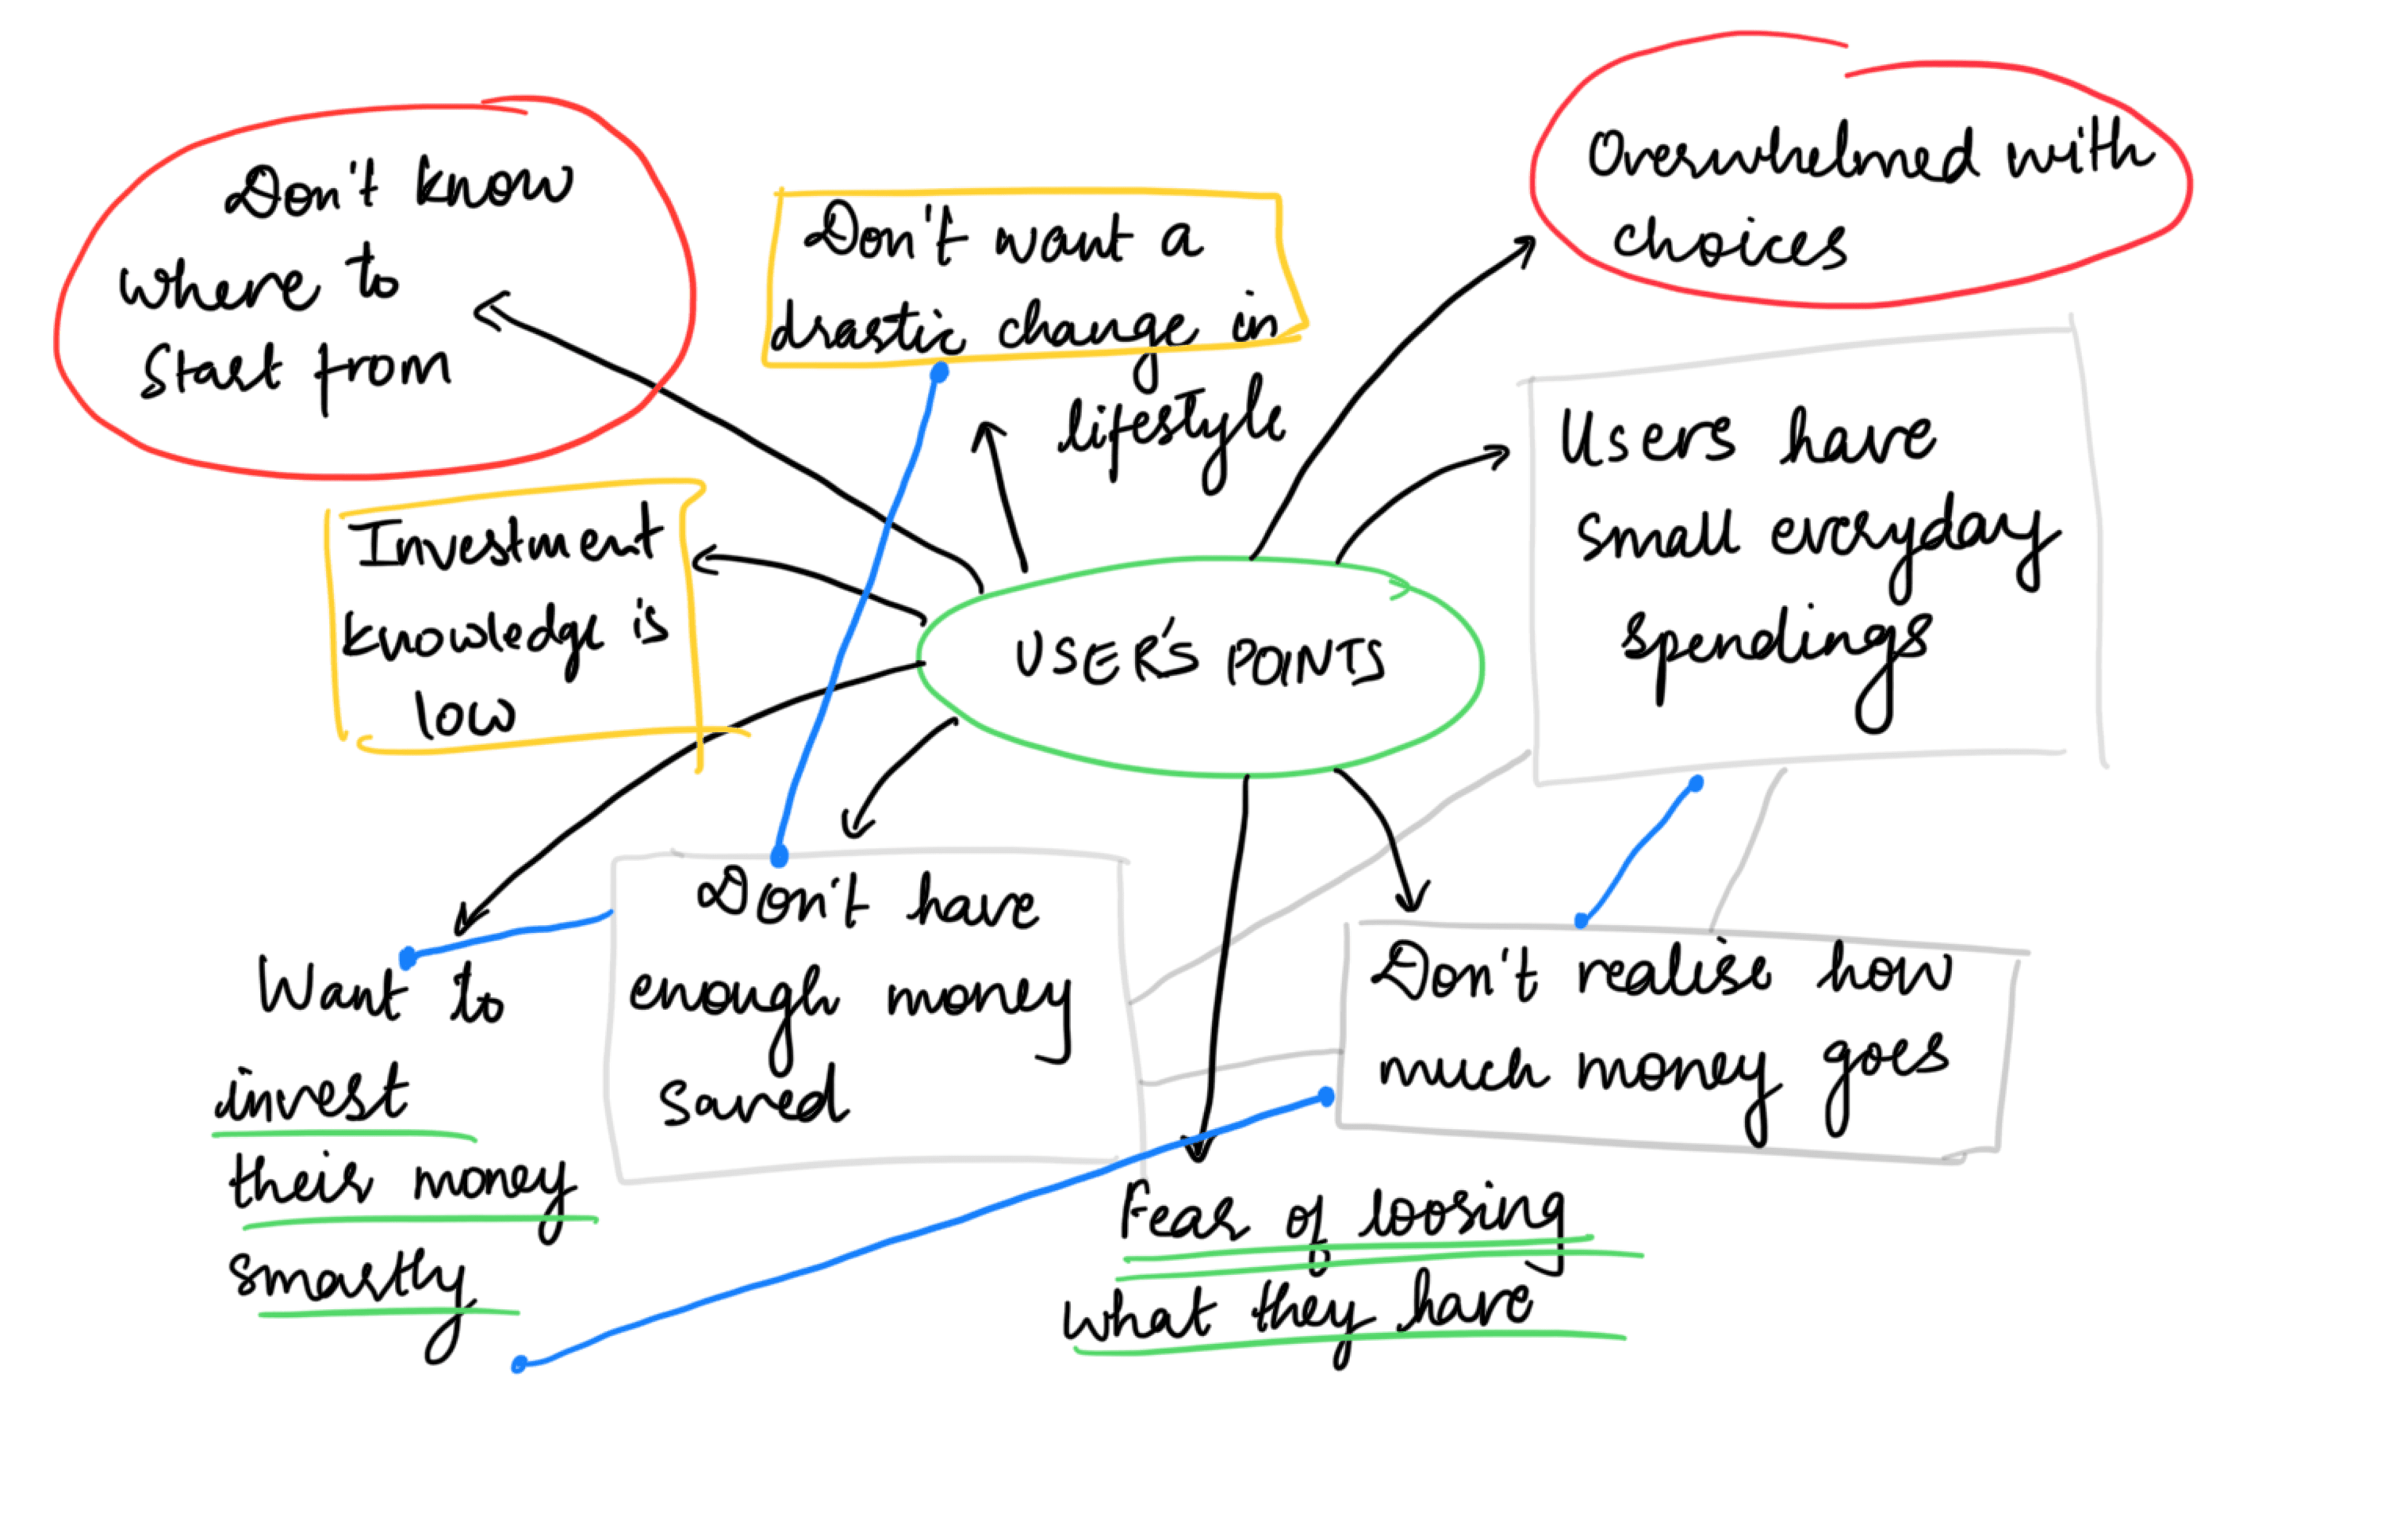 Don't know
where to
start from
Don't want a
drastic change in
lifestyle
Overwhelmed with
choices
Users have
small everyday
spendings
Investment
knowledge is
low
USER'S POINTS
Want to
invest
their money
smartly
Don't have
enough money
saved
Don't realise how
much money goes
Fear of loosing
what they have